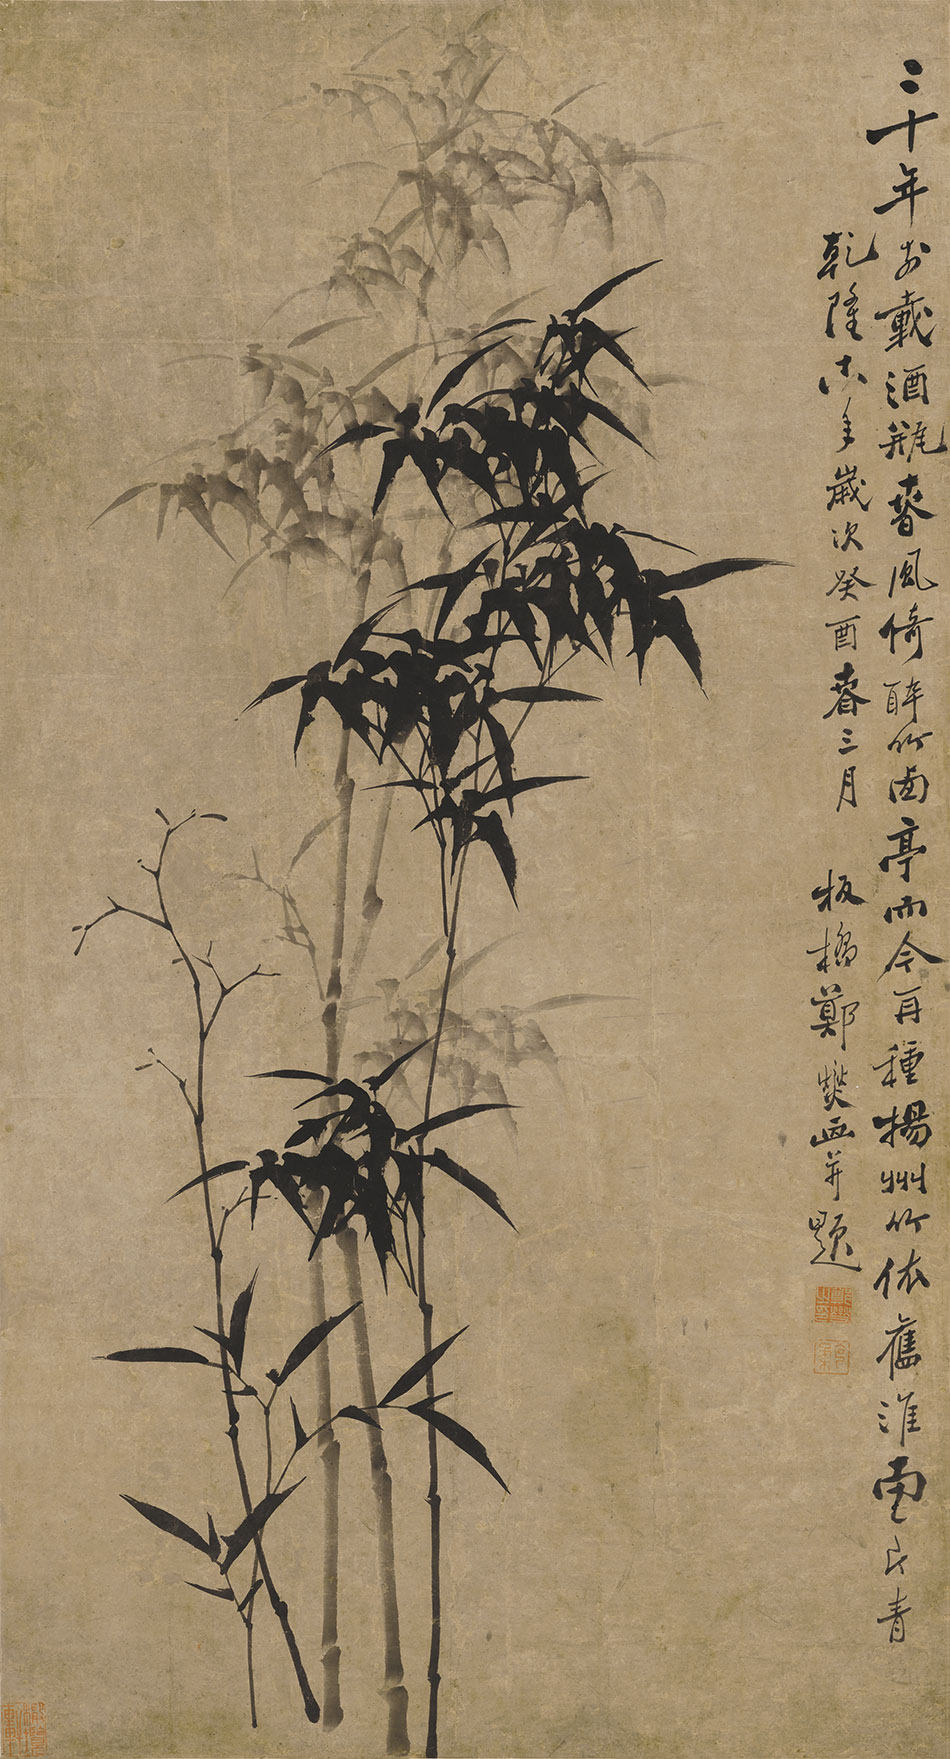 二十年前載酒瓶春風倚醉竹西亭而今再種揚州竹依舊淮南一片青
乾隆十八年歲次癸酉春三月 板橋鄭燮画并題